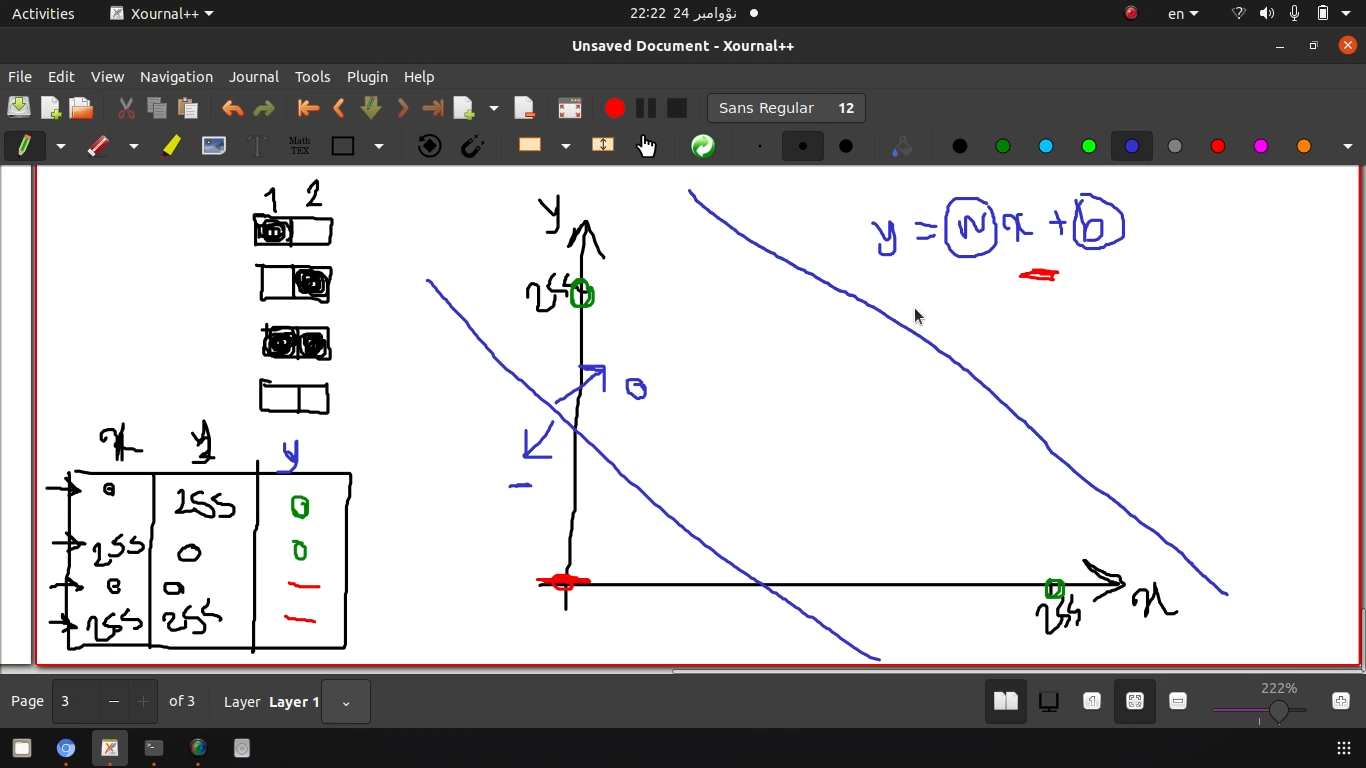 Activities Xournal++ 22:22 24 نۆوامبر en
Unsaved Document - Xournal++
File Edit View Navigation Journal Tools Plugin Help
Sans Regular 12
Math TEX
1 2
y
y = mx + b
255
0
-
x y y
0 255 0
255 0 0
0 0 -
255 255 -
255 x
Page 3 of 3 Layer Layer 1 222%